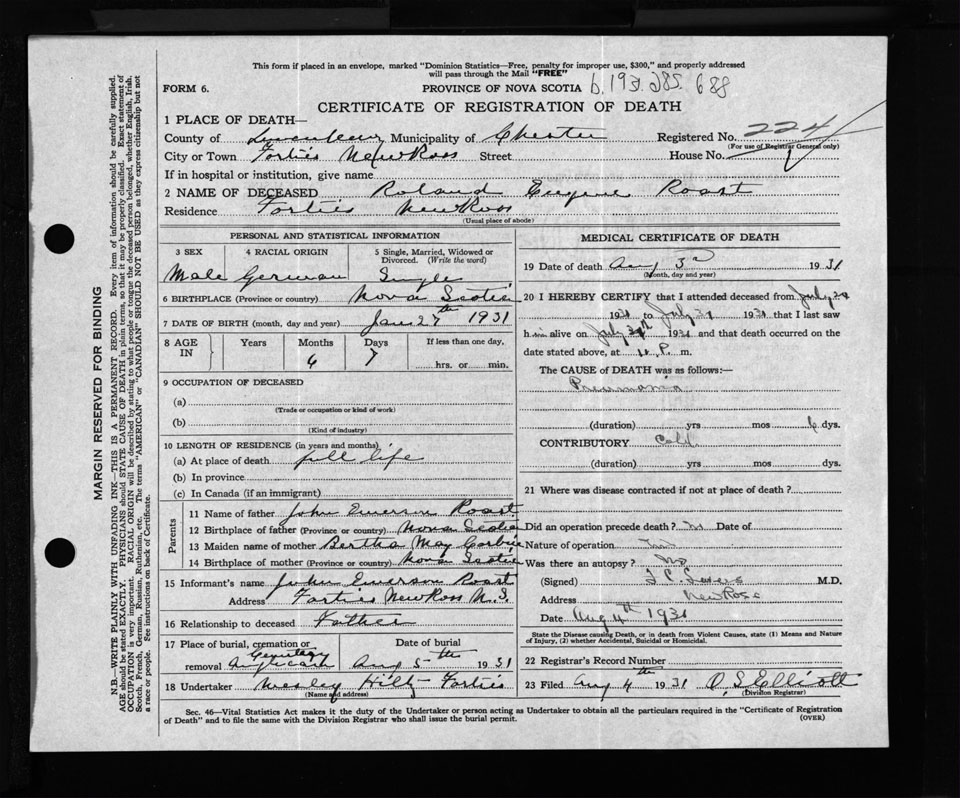 This form if placed in an envelope, marked "Dominion Statistics—Free, penalty for improper use, $300," and properly addressed
will pass through the Mail "FREE"
FORM 6.
PROVINCE OF NOVA SCOTIA b.193.285.688
CERTIFICATE OF REGISTRATION OF DEATH
1 PLACE OF DEATH—
County of Lunenburg Municipality of Chester Registered No. 224
(For use of Registrar General only)
City or Town Forties New Ross Street House No.
If in hospital or institution, give name
2 NAME OF DECEASED Roland Eugene Roast
Residence Forties New Ross
(Usual place of abode)
PERSONAL AND STATISTICAL INFORMATION
3 SEX 4 RACIAL ORIGIN 5 Single, Married, Widowed or
Divorced. (Write the word)
Male German Single
6 BIRTHPLACE (Province or country) Nova Scotia
7 DATE OF BIRTH (month, day and year) Jan 27th 1931
8 AGE IN Years Months Days If less than one day,
6 7 hrs. or min.
9 OCCUPATION OF DECEASED
(a)
(Trade or occupation or kind of work)
(b)
(Kind of industry)
10 LENGTH OF RESIDENCE (in years and months)
(a) At place of death full life
(b) In province
(c) In Canada (if an immigrant)
Parents
11 Name of father John Emerson Roast
12 Birthplace of father (Province or country) Nova Scotia
13 Maiden name of mother Bertha May
14 Birthplace of mother (Province or country) Nova Scotia
15 Informant's name John Emerson Roast
Address Forties New Ross N.S.
16 Relationship to deceased Father
17 Place of burial, cremation or Date of burial
Cemetery
removal Anglican Aug 5th 1931
18 Undertaker Wesley Hiltz Forties
(Name and address)
MEDICAL CERTIFICATE OF DEATH
19 Date of death Aug 3rd 1931
(Month, day and year)
20 I HEREBY CERTIFY that I attended deceased from July
1931 to July 31 1931 that I last saw
him alive on July 1931 and that death occurred on the
date stated above, at 11 P. m.
The CAUSE OF DEATH was as follows:—
Pneumonia
(duration) yrs mos 6 dys.
CONTRIBUTORY Cold
(duration) yrs mos dys.
21 Where was disease contracted if not at place of death?
Did an operation precede death? Date of
Nature of operation
Was there an autopsy? No
(Signed) M.D.
Address New Ross
Date Aug 4th 1931
State the Disease causing Death, or in death from Violent Causes, state (1) Means and Nature
of Injury, (2) whether Accidental, Suicidal or Homicidal.
22 Registrar's Record Number
23 Filed Aug 4th 1931 O. S Elliott
(Division Registrar)
Sec. 46—Vital Statistics Act makes it the duty of the Undertaker or person acting as Undertaker to obtain all the particulars required in the "Certificate of Registration
of Death" and to file the same with the Division Registrar who shall issue the burial permit.
(OVER)
MARGIN RESERVED FOR BINDING
N.B.—WRITE PLAINLY WITH UNFADING INK—THIS IS A PERMANENT RECORD. Every item of information should be carefully supplied.
AGE should be stated EXACTLY. PHYSICIANS should STATE CAUSE OF DEATH in plain terms, so that it may be properly classified. Exact statement of
OCCUPATION is very important. RACIAL ORIGIN will be described by stating to what people or tongue the deceased person belonged, whether English, Irish,
Scotch, French, German, Russian, Ruthenian, etc. The terms "AMERICAN" or "CANADIAN" SHOULD NOT BE USED as they express citizenship but not
a race or people. See instructions on back of Certificate.